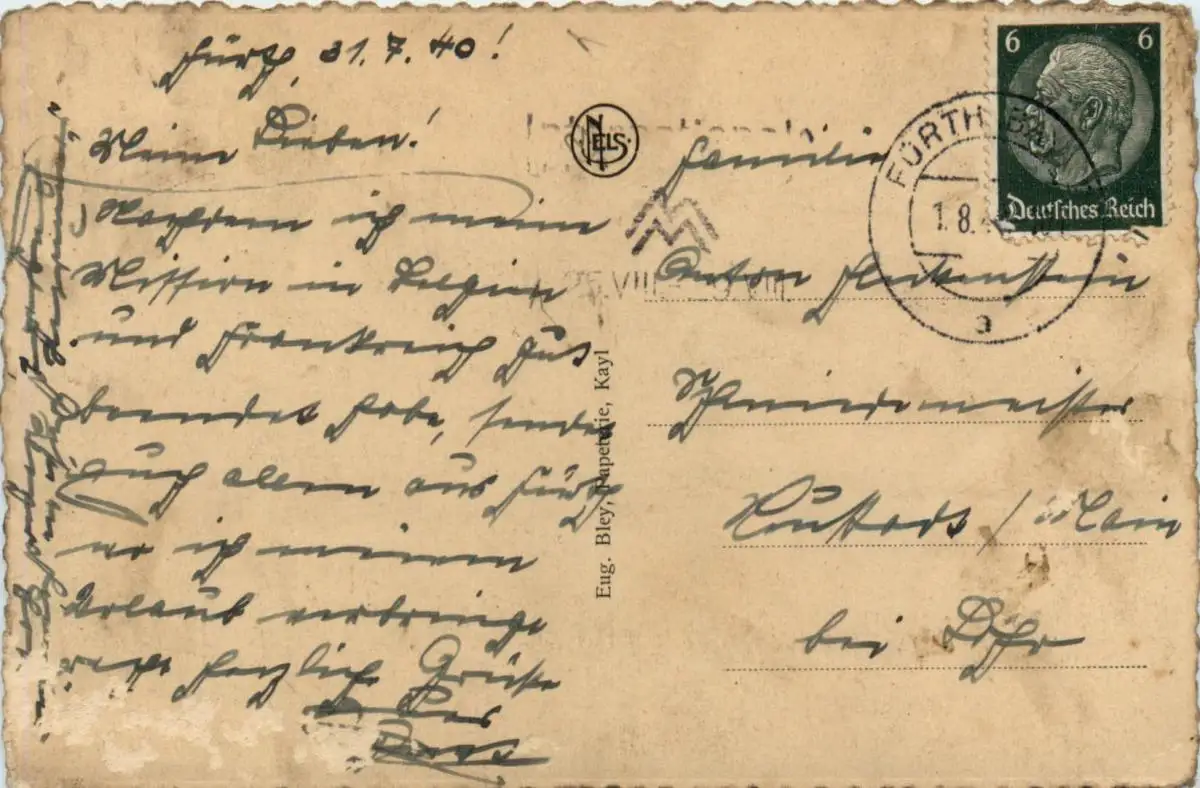 Fürth, 31.7.40!
Meine Lieben!
Nachdem ich meine
Mission in Belgien
und Frankreich gut
beendet habe, sende
Euch allen aus Fürth
wo ich meinen
Urlaub verbringe
recht herzliche Grüße
Euer
NELS
Eug. Bley, Papeterie, Kayl
Familie
Anton
Schmiedemeister
Neustadt / Main
bei Lohr
6 6
Deutsches Reich
FÜRTH (BAY)
1.8.40
a